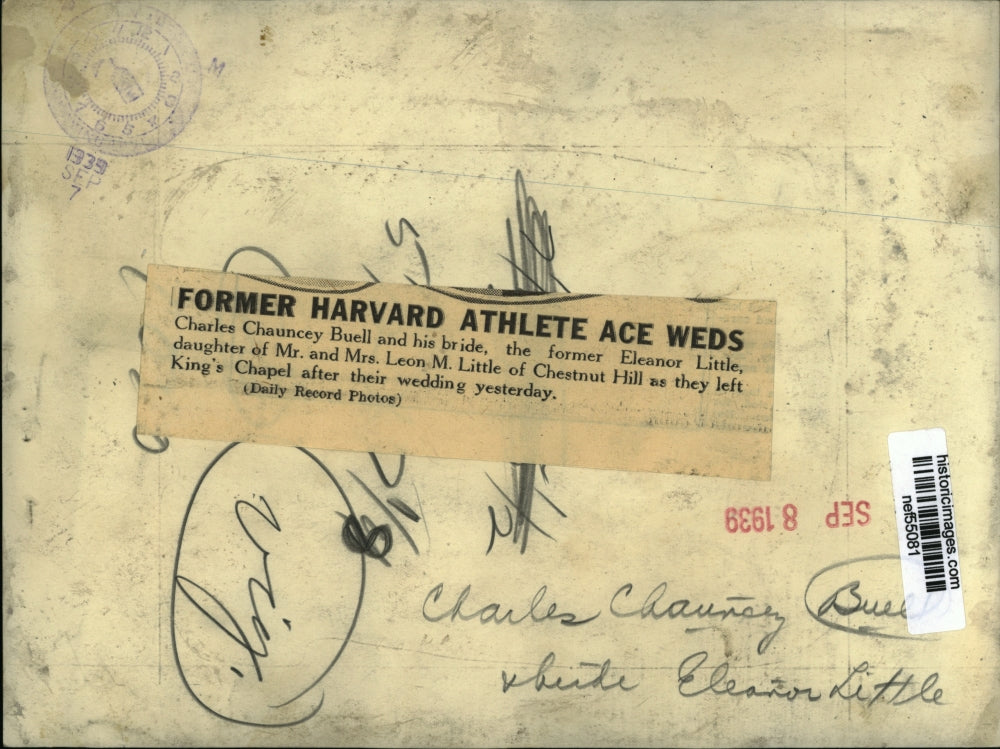 1939
SEP
7
FORMER HARVARD ATHLETE ACE WEDS
Charles Chauncey Buell and his bride, the former Eleanor Little,
daughter of Mr. and Mrs. Leon M. Little of Chestnut Hill as they left
King's Chapel after their wedding yesterday.
(Daily Record Photos)
SEP 8 1939
historicimages.com
nef55081
Charles Chauncey Buell
& bride Eleanor Little